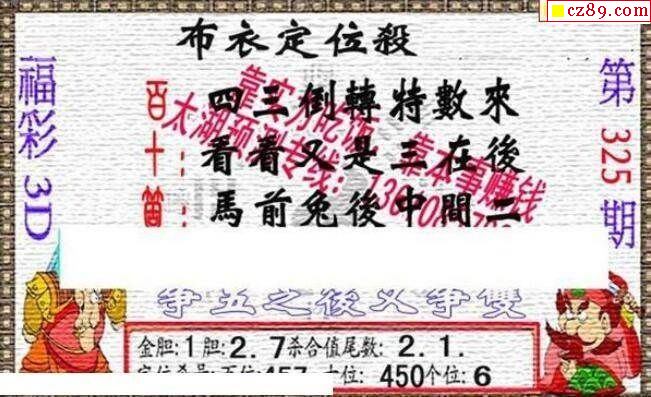 cz89.com
布衣定位殺
福彩 3D
第 325 期
百：四三倒轉特數來
十：看看又是三在後
馬前兔後中間二
靠实力吃饭 靠本事赚钱
太湖预测专线：
争五之後又争雙
金胆:1 胆:2.7杀合值尾数: 2.1.
百位:457 十位: 450个位:6